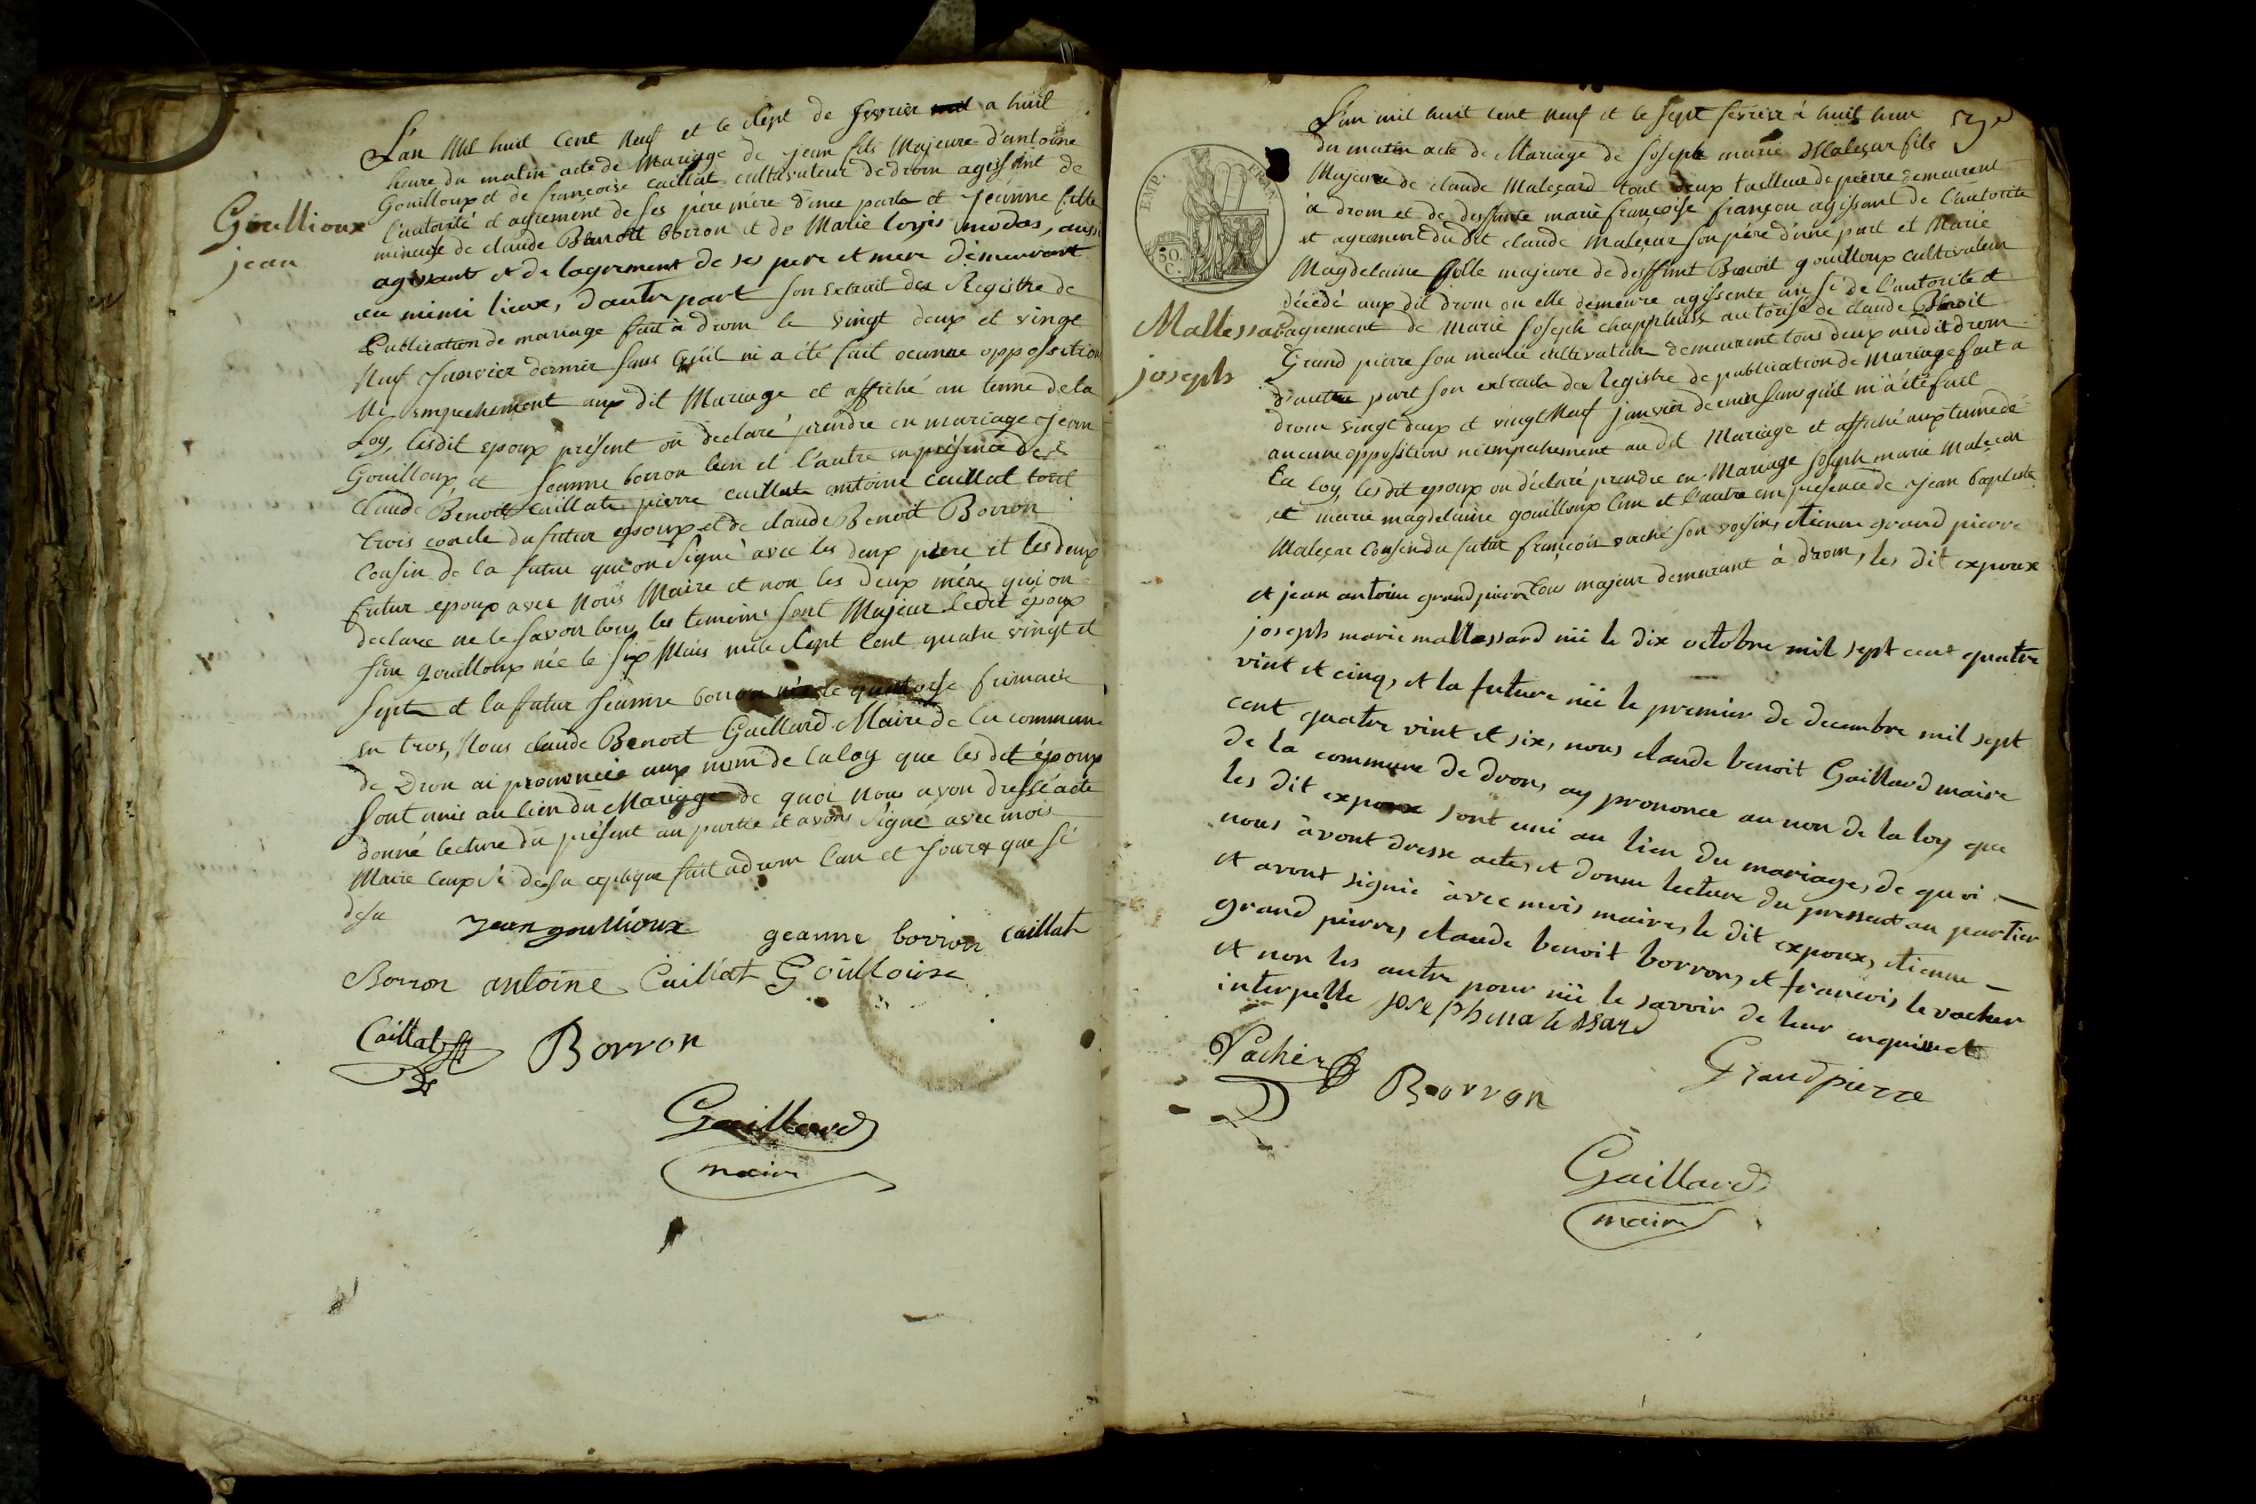 L'an Mil huit Cent Neuf et le Sept de fevrier a huit
heure du matin acte de Mariage de jean fils Majeure d'antoine
Gouilloux et de françoise Caillat cultivateur de drom agissant de
l'autorité et agrement de ses pere mère d'une parte et Jeanne fille
mineure de claude Benoit borron et de Marie
agissant et de lagrement de ses pere et mere demeurant
au mimi lieux, d'autre part son Extrait des Registre de
Publication de mariage fait à drom le Vingt deux et vingt
Neuf Janvier dernier sans qu'il ni a été fait ocunne opposition
Ni empechement aux dit Mariage et affiché au terme de la
Loy, lesdit epoux présent on declaré prendre en mariage Jean
Gouilloux et Jeanne borron lun et l'autre en présence de
claude Benoit Caillat pierre caillat antoine Caillat tout
trois concle du futur epoux et de claude Benoit Borron
Cousin de la futur qui on Signé avec les deux père et les deux
futur epoux avec Nous Maire et non les deux mère qui on
declaree ne le savoir tous les temoins sont Majeur Ledit époux
Jean gouilloux née le six Mais mile Sept Cent quatre vingt et
Sept et la futur Jeanne borron née le quatorse frimaire
en trois, Nous claude Benoit Gaillard Maire de la commune
de Drom ai prononcée aux nom de la loy que les dit époux
Sont unis au lien du Mariage de quoi Nous avon dressé acte
donné lecture du présent au partie et avons Signé avec mois
Maire ceux si desu expliqué fait a drom l'an et Jour que si
desu
Goullioux
jean
jean goullioux geanne borron Caillat
Borron antoine Caillat Gouilloux
Caillat Borron
Gaillard
maire
L'an mil huit cent neuf et le sept fevrier à huit heure
du matin acte de Mariage de joseph marie Maleçar fils
Majeure de claude Maleçard tout deux tailleur de pierre demeurent
à drom et de deffunte marie françoise françon agissant de l'autorité
et agrement du dit claude maleçar son père d'une part et Marie
Magdelaine fille majeure de deffunt Benoit gouilloux cultivateur
décédé aux dit drom ou elle demeure agissente de l'autorite et
agrement de Marie Joseph chapphuis autorisé de claude Benoit
Grand pierre son marie cultivateur demeurent tous deux au dit drom
d'autre part son extraite des Registre de publication de Mariage fait a
drom vingt deux et vingt Neuf janvier dernier sans qu'il ni à été fait
aucune oppositions ni empechement au dit Mariage et affiché aux terme de
La loy les dit epoux on déclaré prendre en Mariage joseph marie Maleçar
et marie magdelaine gouilloux l'un et l'autre en presence de jean baptiste
Maleçar Cousin du futur françois vaché son voisin, etienne grand pierre
et jean antoine grand pierre tous majeur demeurant à drom, les dit expoux
joseph marie mallessard né le dix octobre mil sept cent quatre
vint et cinq, et la future né le premier de decembre mil sept
cent quatre vint et six, nous claude benoit Gaillard maire
de la commune de drom, ay prononce au non de la loy que
les dit expoux sont uni au lien du mariage, de quoi
nous avont dresse acte, et donne lecture du pressent au partier
et avont signié avec mois maire, le dit expoux, etienne
grand pierre, claude benoit borron, et francois le vacher
et non les autre pour né le savoir de leur enqui et
interpelle
50.
C.
EMP.
FRAN
Mallessard
joseph
joseph malessard
Vacher
Borron
Grandpierre
Gaillard
maire